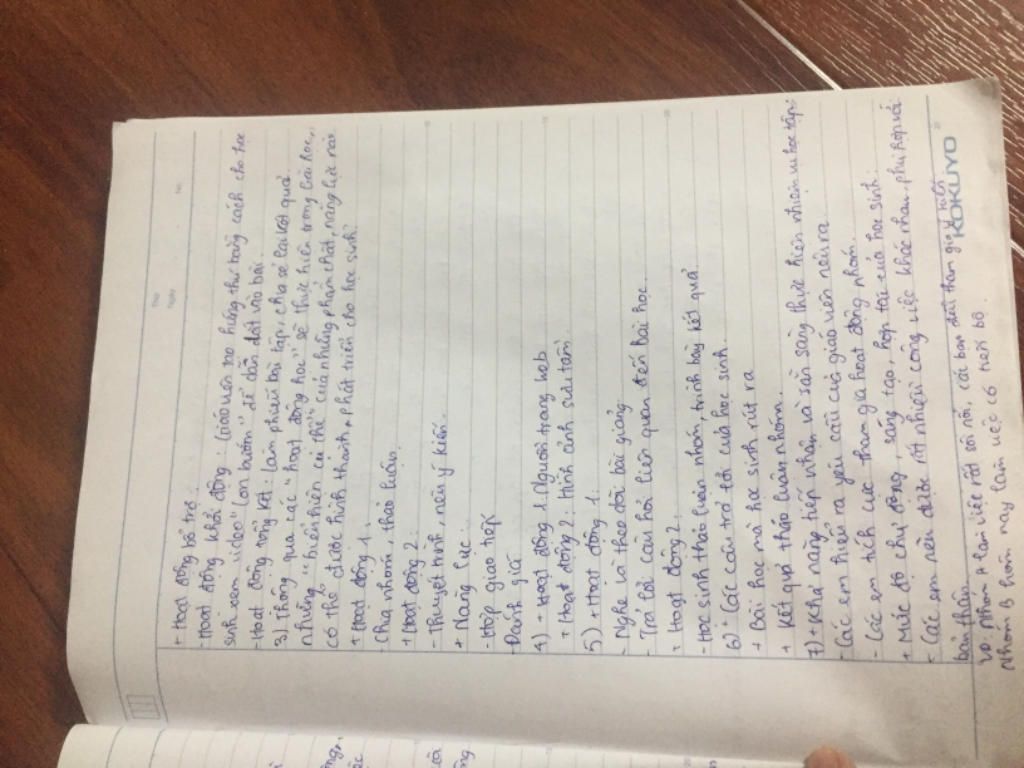 Thứ
Ngày
No.
+ Hoạt động bổ trợ.
- Hoạt động khởi động: Giáo viên tạo hứng thú bằng cách cho học
sinh xem video "con bướm" để dẫn dắt vào bài.
- Hoạt động tổng kết: Làm phiếu bài tập, chia sẻ lại kết quả.
3) Thông qua các "hoạt động học" sẽ thực hiện trong bài học,
những "biểu hiện cụ thể" của những phẩm chất, năng lực nào
có thể được hình thành, phát triển cho học sinh?
+ Hoạt động 1.
- Chia nhóm, thảo luận.
+ Hoạt động 2.
- Thuyết trình, nêu ý kiến.
+ Năng lực.
- Hợp giao tiếp
- Đánh giá
4) + Hoạt động 1. Nguồn trang web
+ Hoạt động 2: Hình ảnh sưu tầm.
5) + Hoạt động 1.
- Nghe và theo dõi bài giảng.
- Trả lời câu hỏi liên quan đến bài học.
+ Hoạt động 2
- Học sinh thảo luận nhóm, trình bày kết quả
6) + Các câu trả lời của học sinh.
+ Bài học mà học sinh rút ra
+ Kết quả thảo luận nhóm.
7) + Khả năng tiếp nhận và sẵn sàng thực hiện nhiệm vụ học tập:
- Các em hiểu ra yêu cầu của giáo viên nêu ra
- Các em tích cực tham gia hoạt động nhóm.
+ Mức độ chủ động, sáng tạo, hợp tác của học sinh:
- Các em nêu được rất nhiều công việc khác nhau, phù hợp với
bản thân
VD: Nhóm A làm việc rất sôi nổi, các bạn đều tham gia ý kiến
Nhóm B hôm nay làm việc có tiến bộ.
KOKUYO